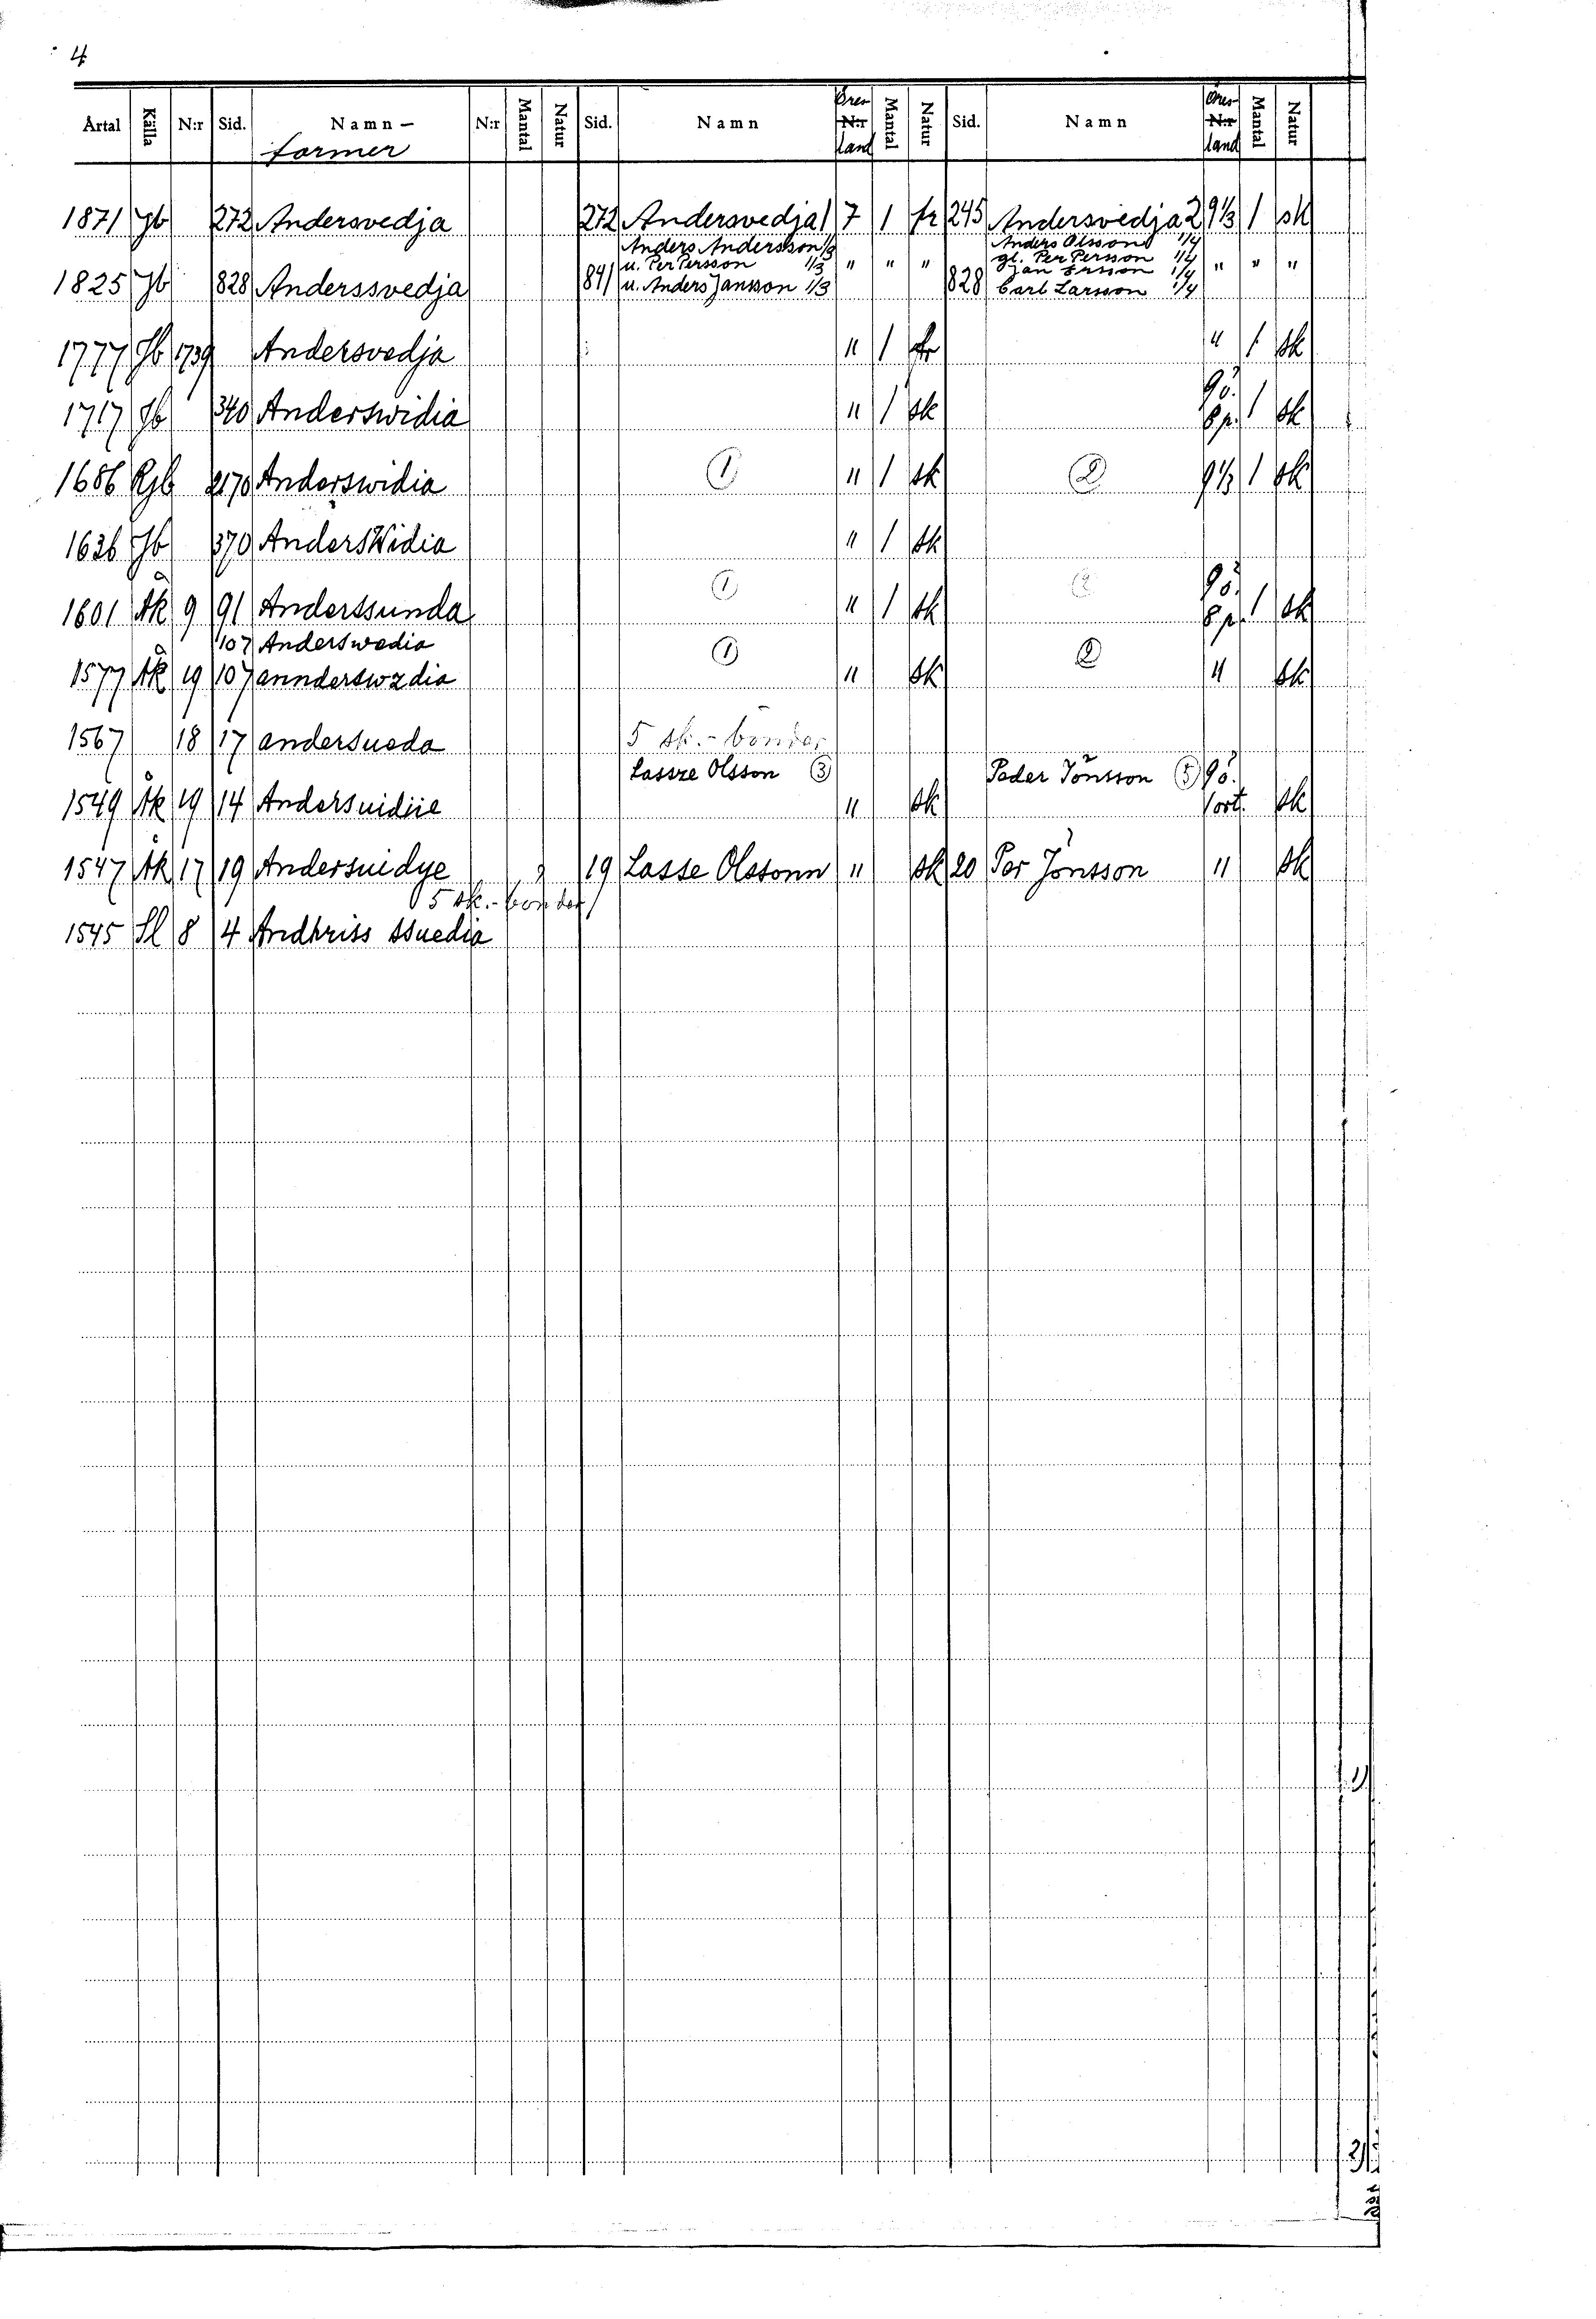 4
Årtal Källa N:r Sid. Namn- former N:r Mantal Natur Sid. Namn Öres N:r land Mantal Natur Sid. Namn Öres N:r land Mantal Natur
1871 Jb 272 Andersvedja 272 Andersvedja 1 7 1 fr 245 Andersvedja 2 9 1/3 1 sk
Anders Andersson 1/3 Anders Olsson 1/4
u. Per Persson 1/3 " " " gl. Per Persson 1/4 " " "
Jan Ersson 1/4
1825 Jb 828 Anderssvedja 841 u. Anders Jansson 1/3 828 Carl Larsson 1/4
1777 Jb 1739 Andersvedja " 1 fr " 1 sk
1717 Jb 340 Anderswidia " 1 sk 9ö. 8p. 1 sk
1686 Rjb 2170 Anderswidia 1 " 1 sk 2 9 1/3 1 sk
1636 Jb 370 AndersWidia " 1 sk
1601 Åk 9 91 Anderssunda 1 " 1 sk 2 9ö. 8p. 1 sk
107 Anderswedia
1577 Åk 19 107 annderswædia 1 " sk 2 " sk
1567 18 17 andersueda 5 sk.-bönder
Lassze Olsson 3 Peder Jönsson 5 9ö.
1549 Åk 19 14 Andersuidiie " sk 1 ort. sk
1547 Åk 17 19 Andersuidye 19 Lasse Olssonn " sk 20 Per Jönsson " sk
5 sk.-bönder
1545 Sl 8 4 Andhriss ssuedia